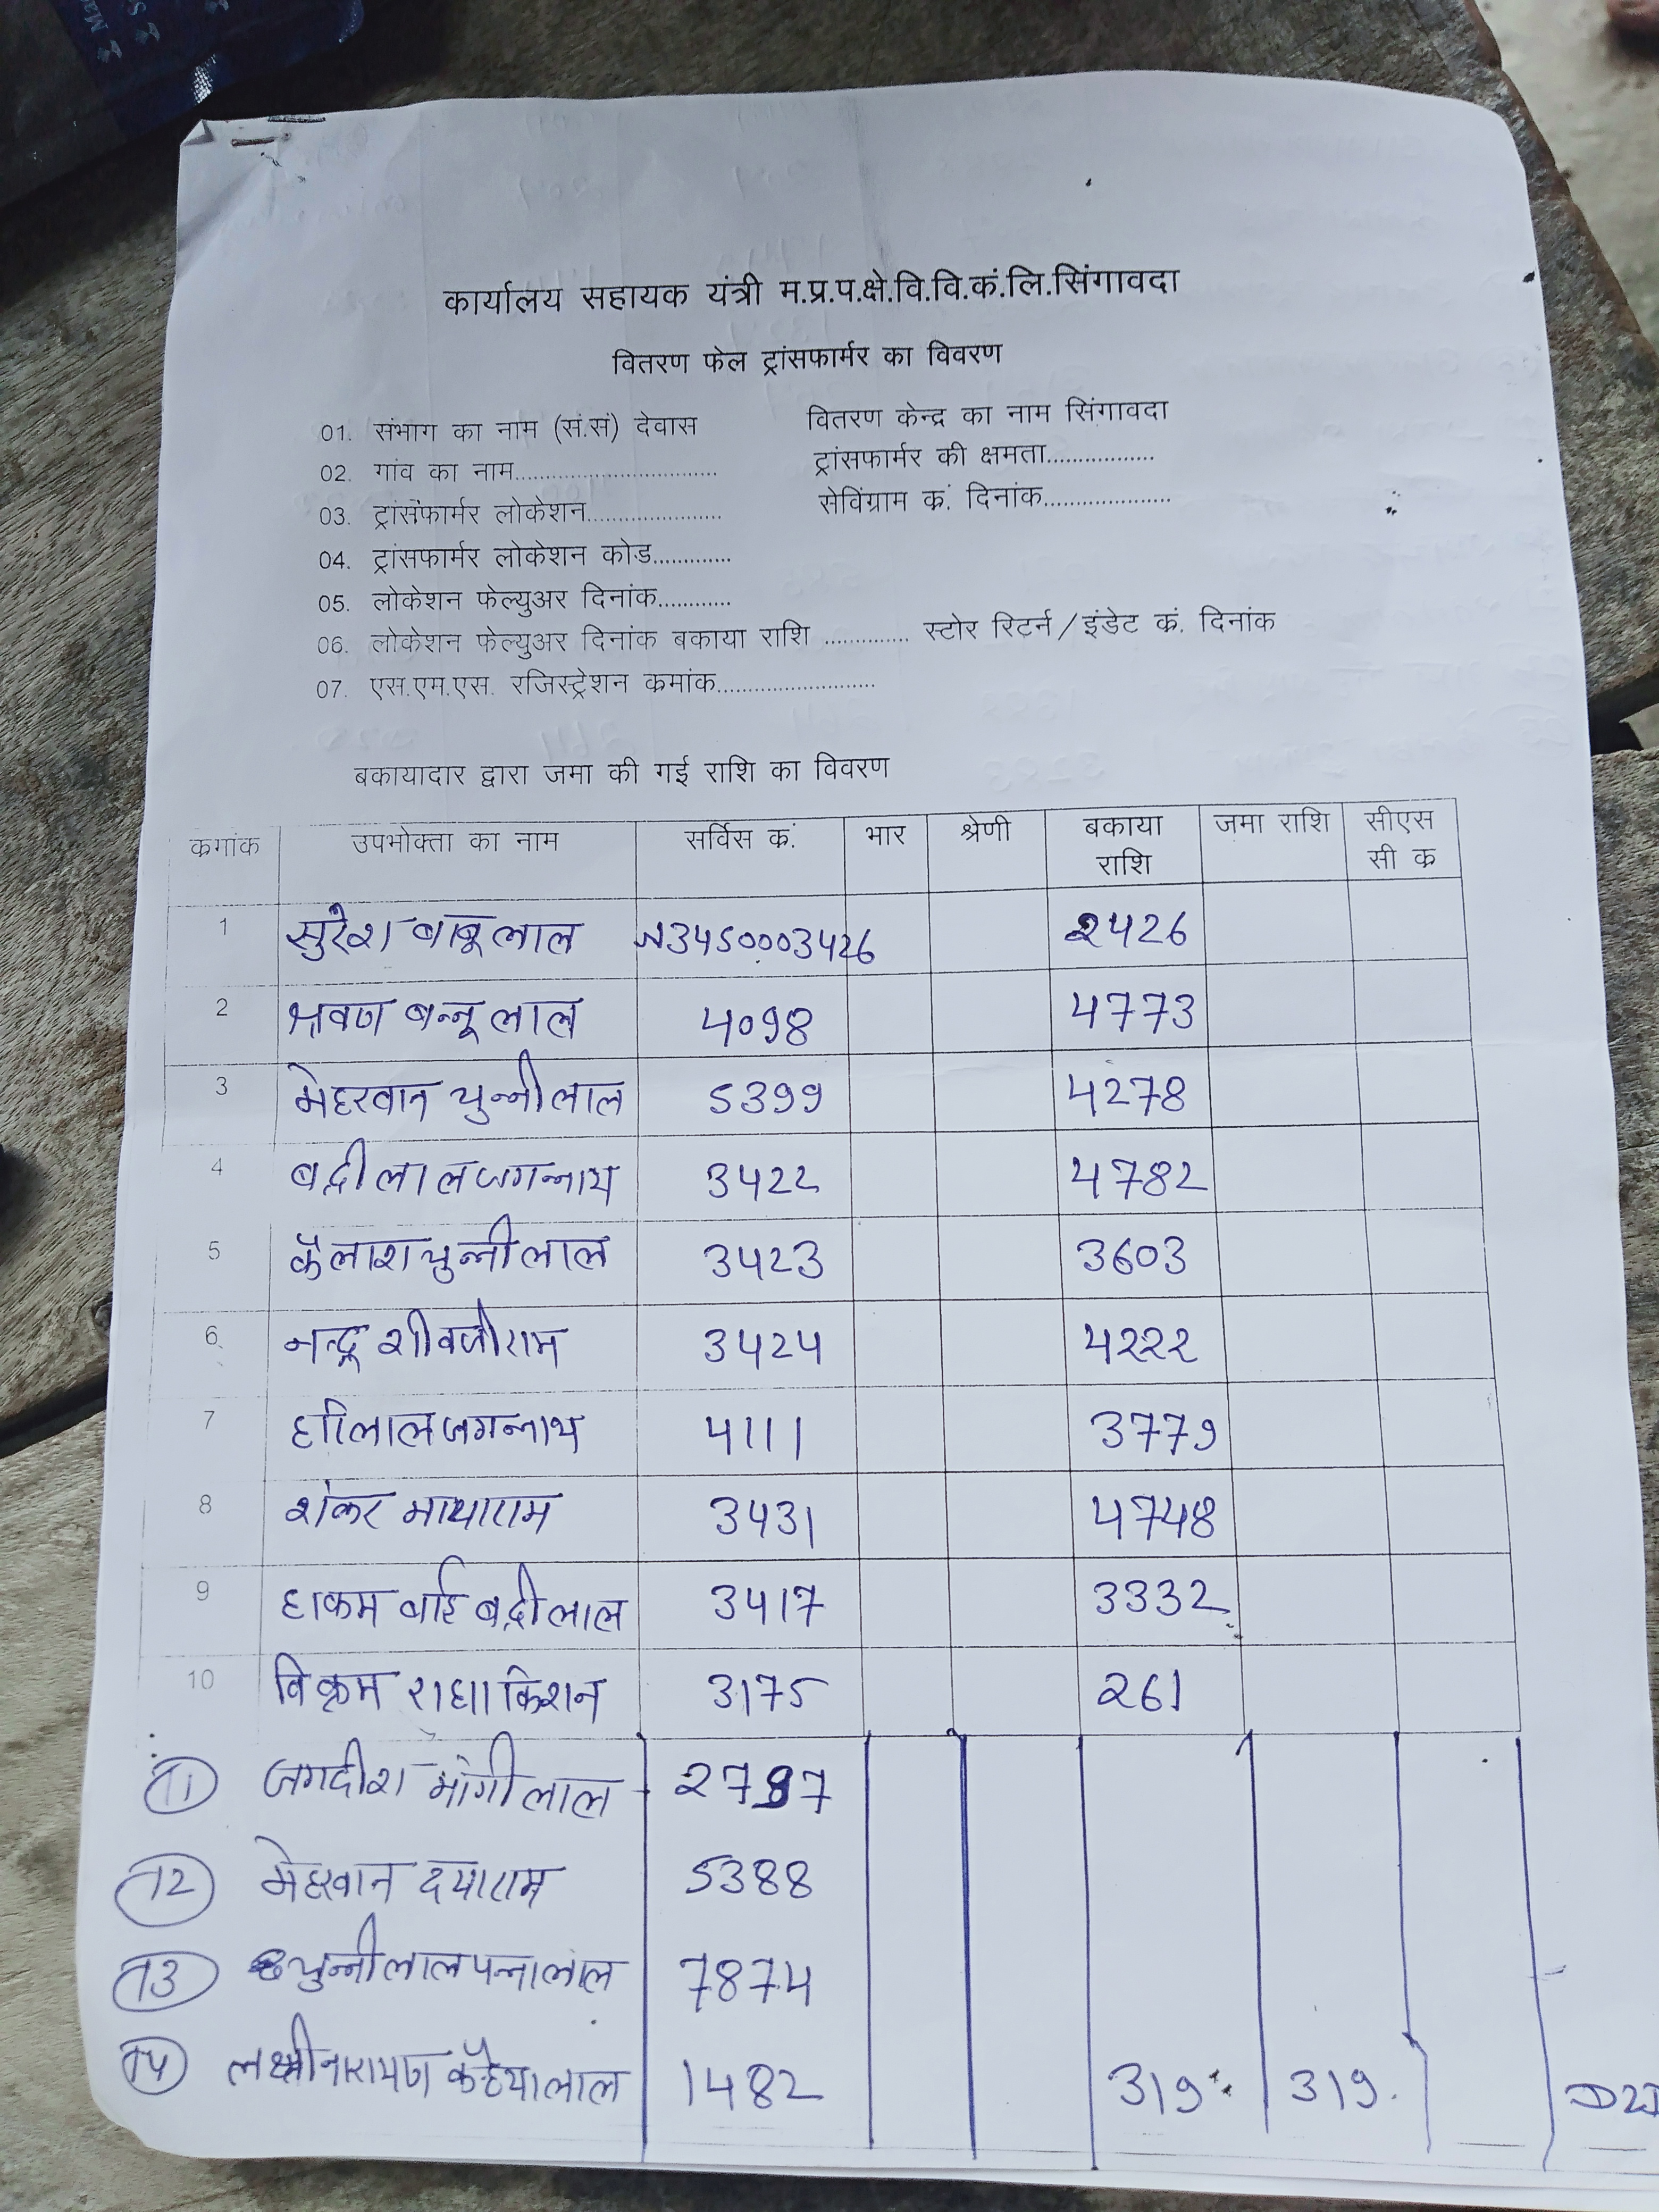 कार्यालय सहायक यंत्री म.प्र.प.क्षे.वि.वि.कं.लि.सिंगावदा
वितरण फेल ट्रांसफार्मर का विवरण
01. संभाग का नाम (सं.सं) देवास वितरण केन्द्र का नाम सिंगावदा
02. गांव का नाम............................. ट्रांसफार्मर की क्षमता................
03. ट्रांसफार्मर लोकेशन................... सेविंग्राम क्रं. दिनांक...................
04. ट्रांसफार्मर लोकेशन कोड...........
05. लोकेशन फेल्युअर दिनांक...........
06. लोकेशन फेल्युअर दिनांक बकाया राशि ............. स्टोर रिटर्न/इंडेट क्रं. दिनांक
07. एस.एम.एस. रजिस्ट्रेशन कमांक........................
बकायादार द्वारा जमा की गई राशि का विवरण
कमांक उपभोक्ता का नाम सर्विस क्रं. भार श्रेणी बकाया राशि जमा राशि सीएस सी क्र
1 सुरेश बाबूलाल N3450003426 2426
2 श्रवण बन्नूलाल 4098 4773
3 मेहरवान चुन्नीलाल 5399 4278
4 बद्रीलाल जगन्नाथ 3422 4782
5 कैलाश चुन्नीलाल 3423 3603
6 नन्दू शीवजीराम 3424 4222
7 जगन्नाथ 4111 3779
8 शंकर मायाराम 3431 4748
9 हाकम बाई बद्रीलाल 3417 3332
10 विक्रम राधाकिशन 3175 261
11 जगदीश मांगीलाल 2797
12 मेहरवान दयाराम 5388
13 चुन्नीलाल पन्नालाल 7874
14 लक्ष्मीनारायण कन्हैयालाल 1482 319 319